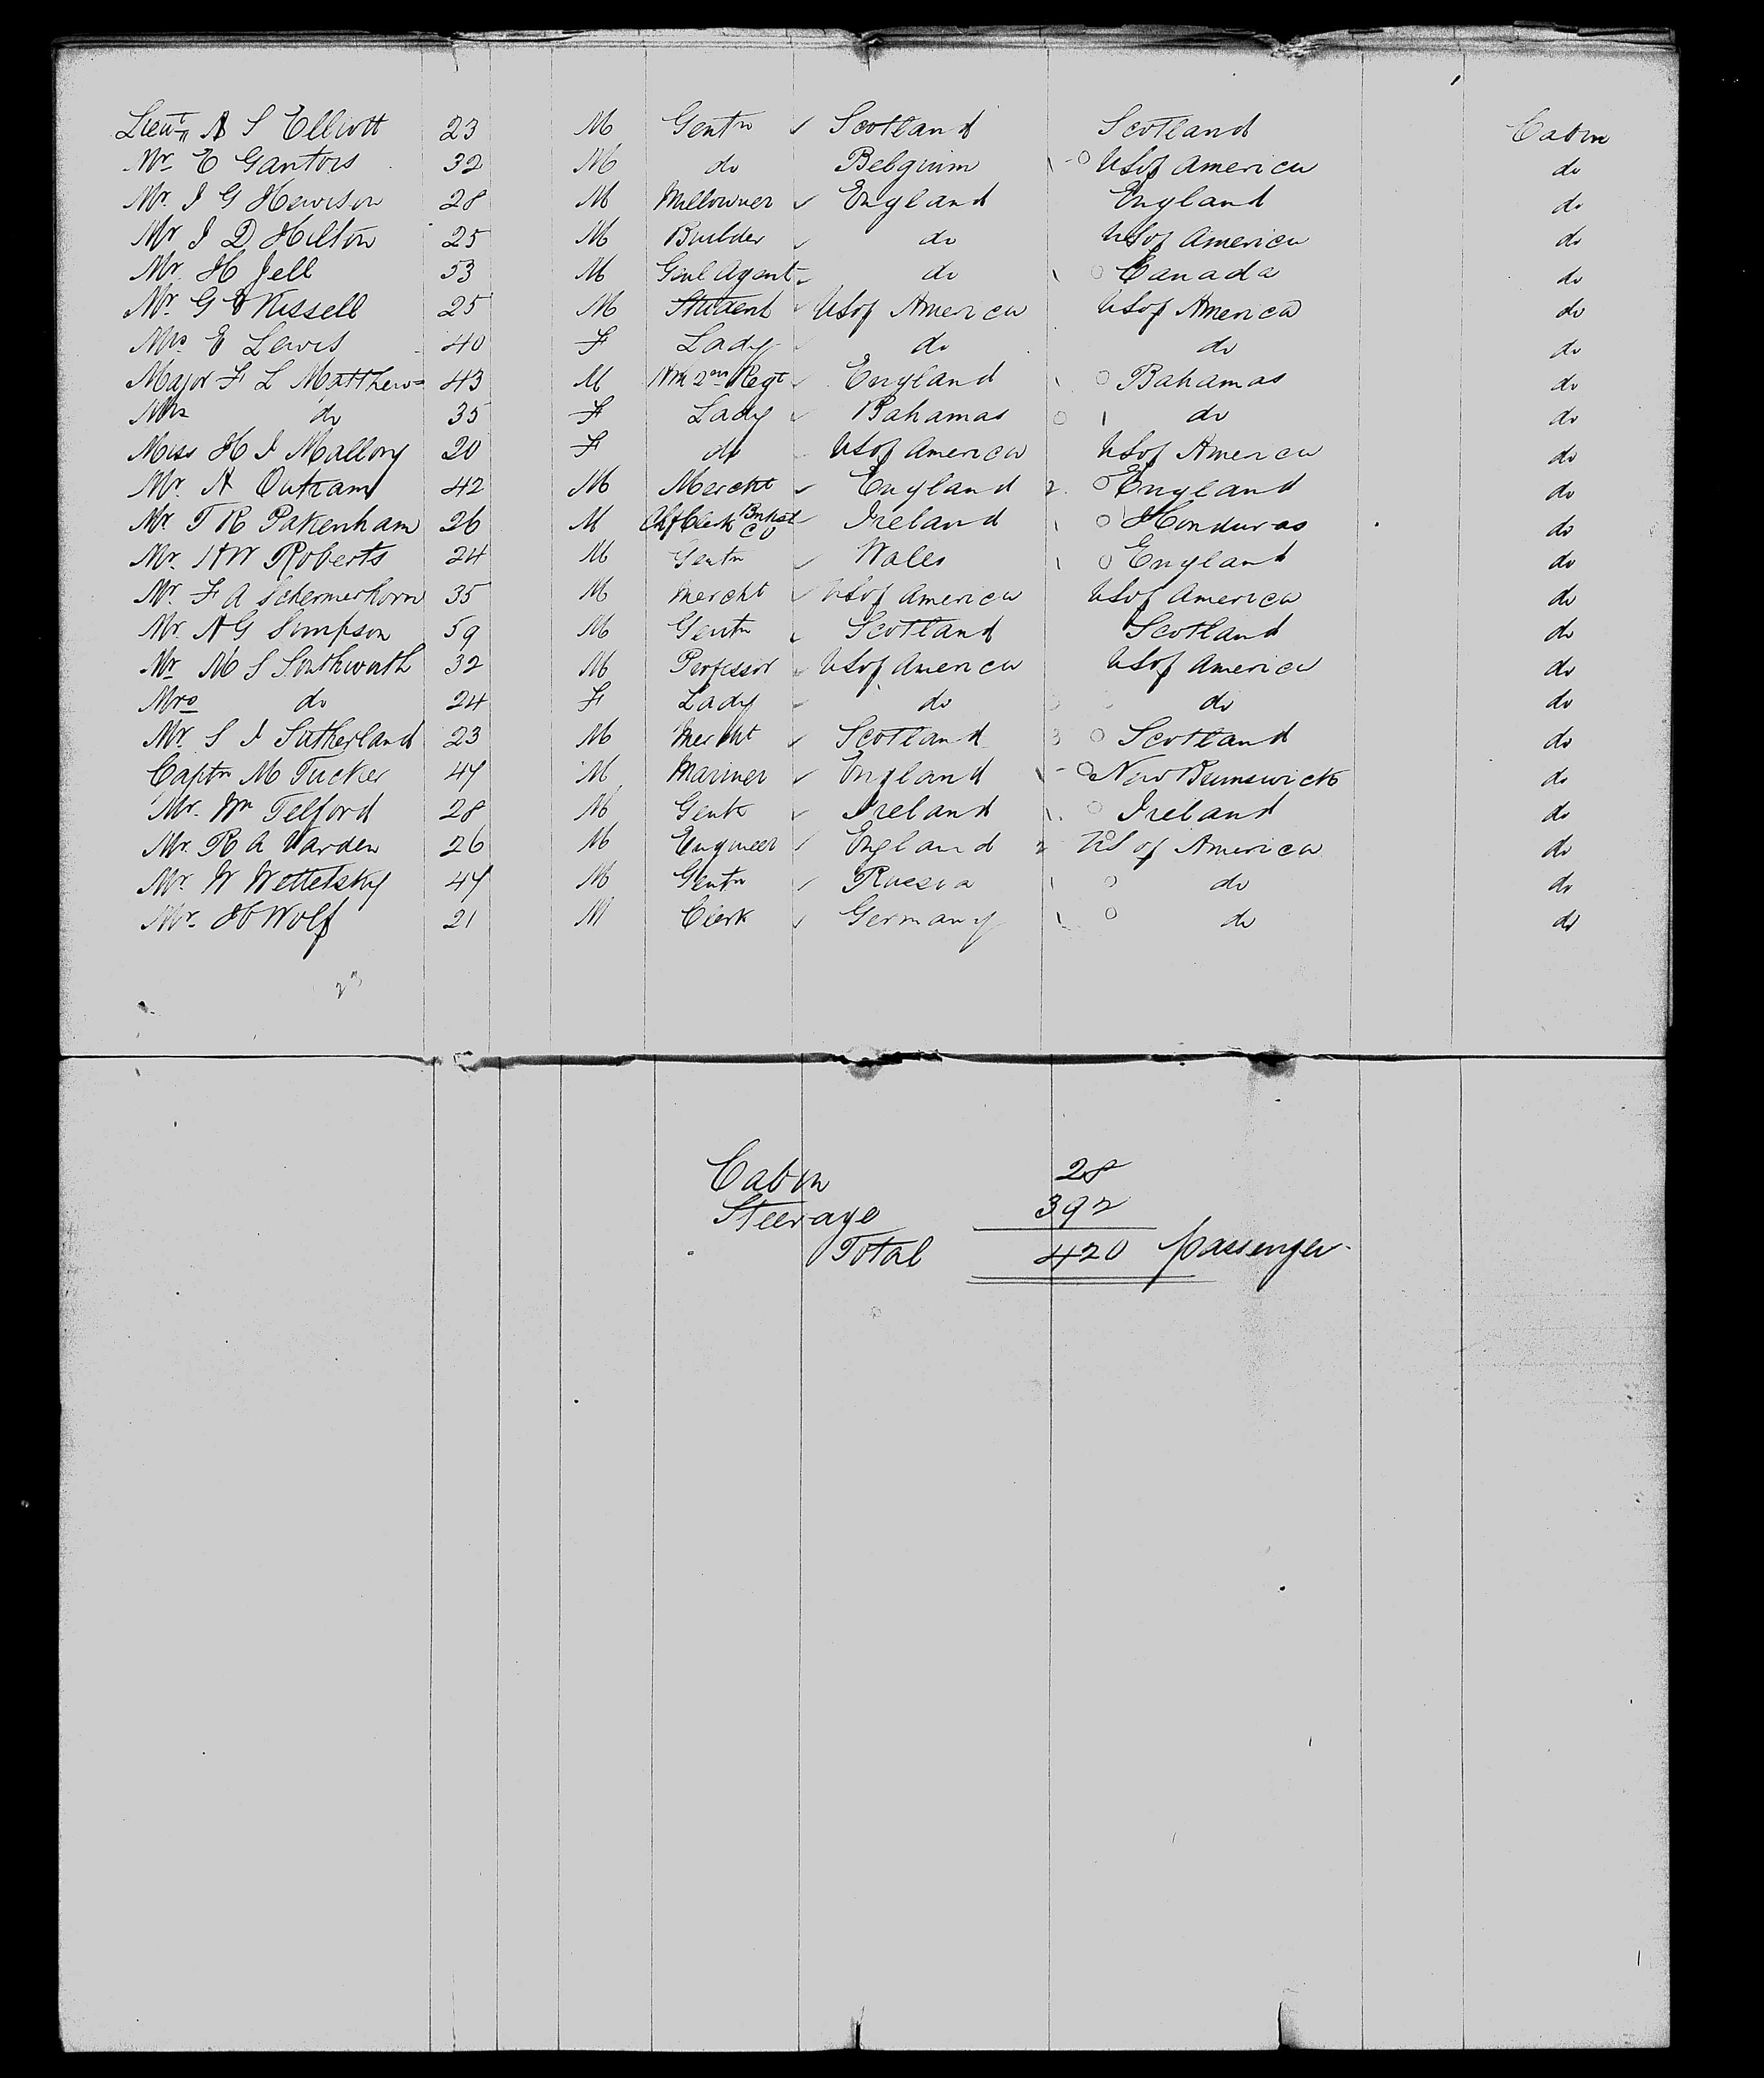 Lieut A S Elliott 23 M Gentn Scotland Scotland Cabin
Mr. E Gantois 32 M do Belguim US of America do
Mr. J G Hewison 28 M Millowner England England do
Mr J D Hilton 25 M Builder do US of America do
Mr. H Jell 53 M Genl Agent do Canada do
Mr. G Kissell 25 M Student US of America US of America do
Mrs E Lewis 40 F Lady do do do
Major F L Matthews 43 M 2nd Regt England Bahamas do
Mrs do 35 F Lady Bahamas do do
Miss H J Mallory 20 F do US of America US of America do
Mr. A Outram 42 M Mercht England England do
Mr. T R Pakenham 26 M Clerk Ireland Honduras do
Mr. H W Roberts 24 M Gentn Wales England do
Mr. F A Schermerhorn 35 M Mercht US of America US of America do
Mr. A G Simpson 59 M Gentn Scotland Scotland do
Mr M S Southworth 32 M Professor US of America US of America do
Mrs do 24 F Lady do do do
Mr. S J Sutherland 23 M Mercht Scotland 3 Scotland do
Captn M Tucker 47 M Mariner England New Brunswick do
Mr. Wm Telford 28 M Gentn Ireland Ireland do
Mr. R A Varden 26 M Engineer England 2 US of America do
Mr. W Wettelsky 47 M Gentn Russia do do
Mr. H Wolf 21 M Clerk Germany do do
23
Cabin 28
Steerage 392
Total 420 passenger